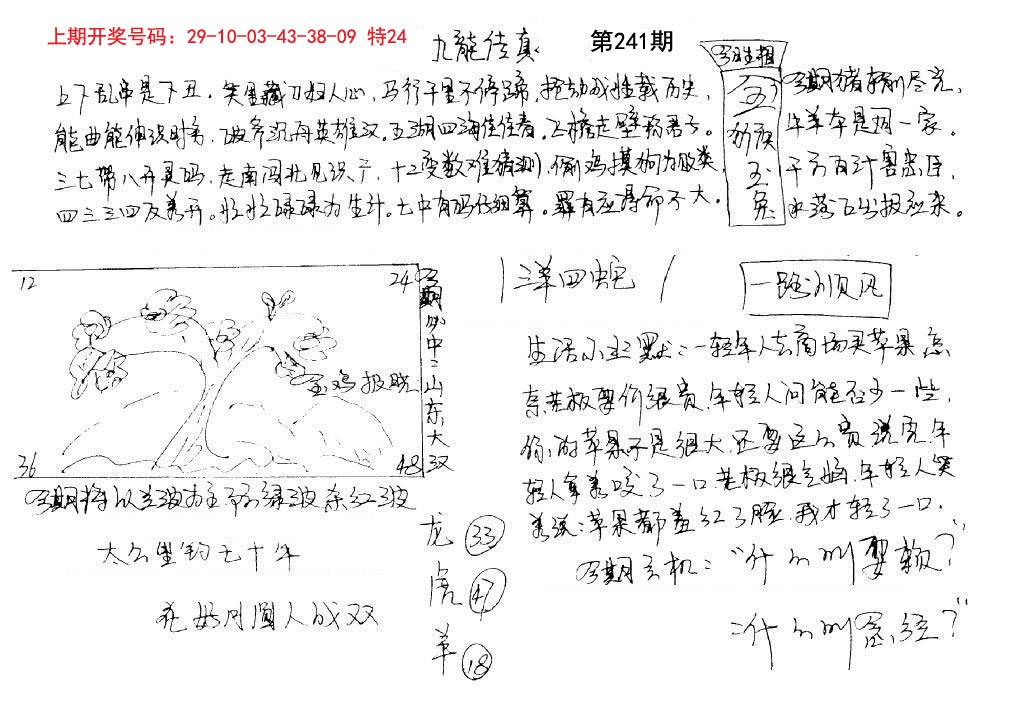 上期开奖号码：29-10-03-43-38-09 特24
九龙传真 第241期
上下乱串是下丑，笑里藏刀扫人心，马行千里不停蹄，
能曲能伸识时务，五湖四海佳佳春，飞檐走壁称君子。
三七带八开灵码，走南闯北见识广，十二变数难猜测，偷鸡摸狗为败类，
四三三四反美开。忙忙碌碌为生计。七中有码仔细算。罪有应得命不大。
玉兔
今期猪羊刚尽完，
牛羊本是同一家。
千方百计害忠臣，
水落石出报应来。
12 24
金鸡报晓
36 48
今期必中二山东大汉
三洋四蛇
一路顺风
今期特以兰波为主 绿波 红波
太公垂钓七十年
花好月圆人成双
龙 33
虎 47
羊 18
生活小幽默：一轻年人去商场买苹果 怎
奈老板要价很贵，年轻人问能否少一些，
你的苹果不是很大 还要这么贵 说完 年
轻人拿着咬了一口 老板很气恼，年轻人笑
着说：苹果都羞红了脸，我才轻了一口．
今期玄机："什么叫耍赖？"
=什么叫